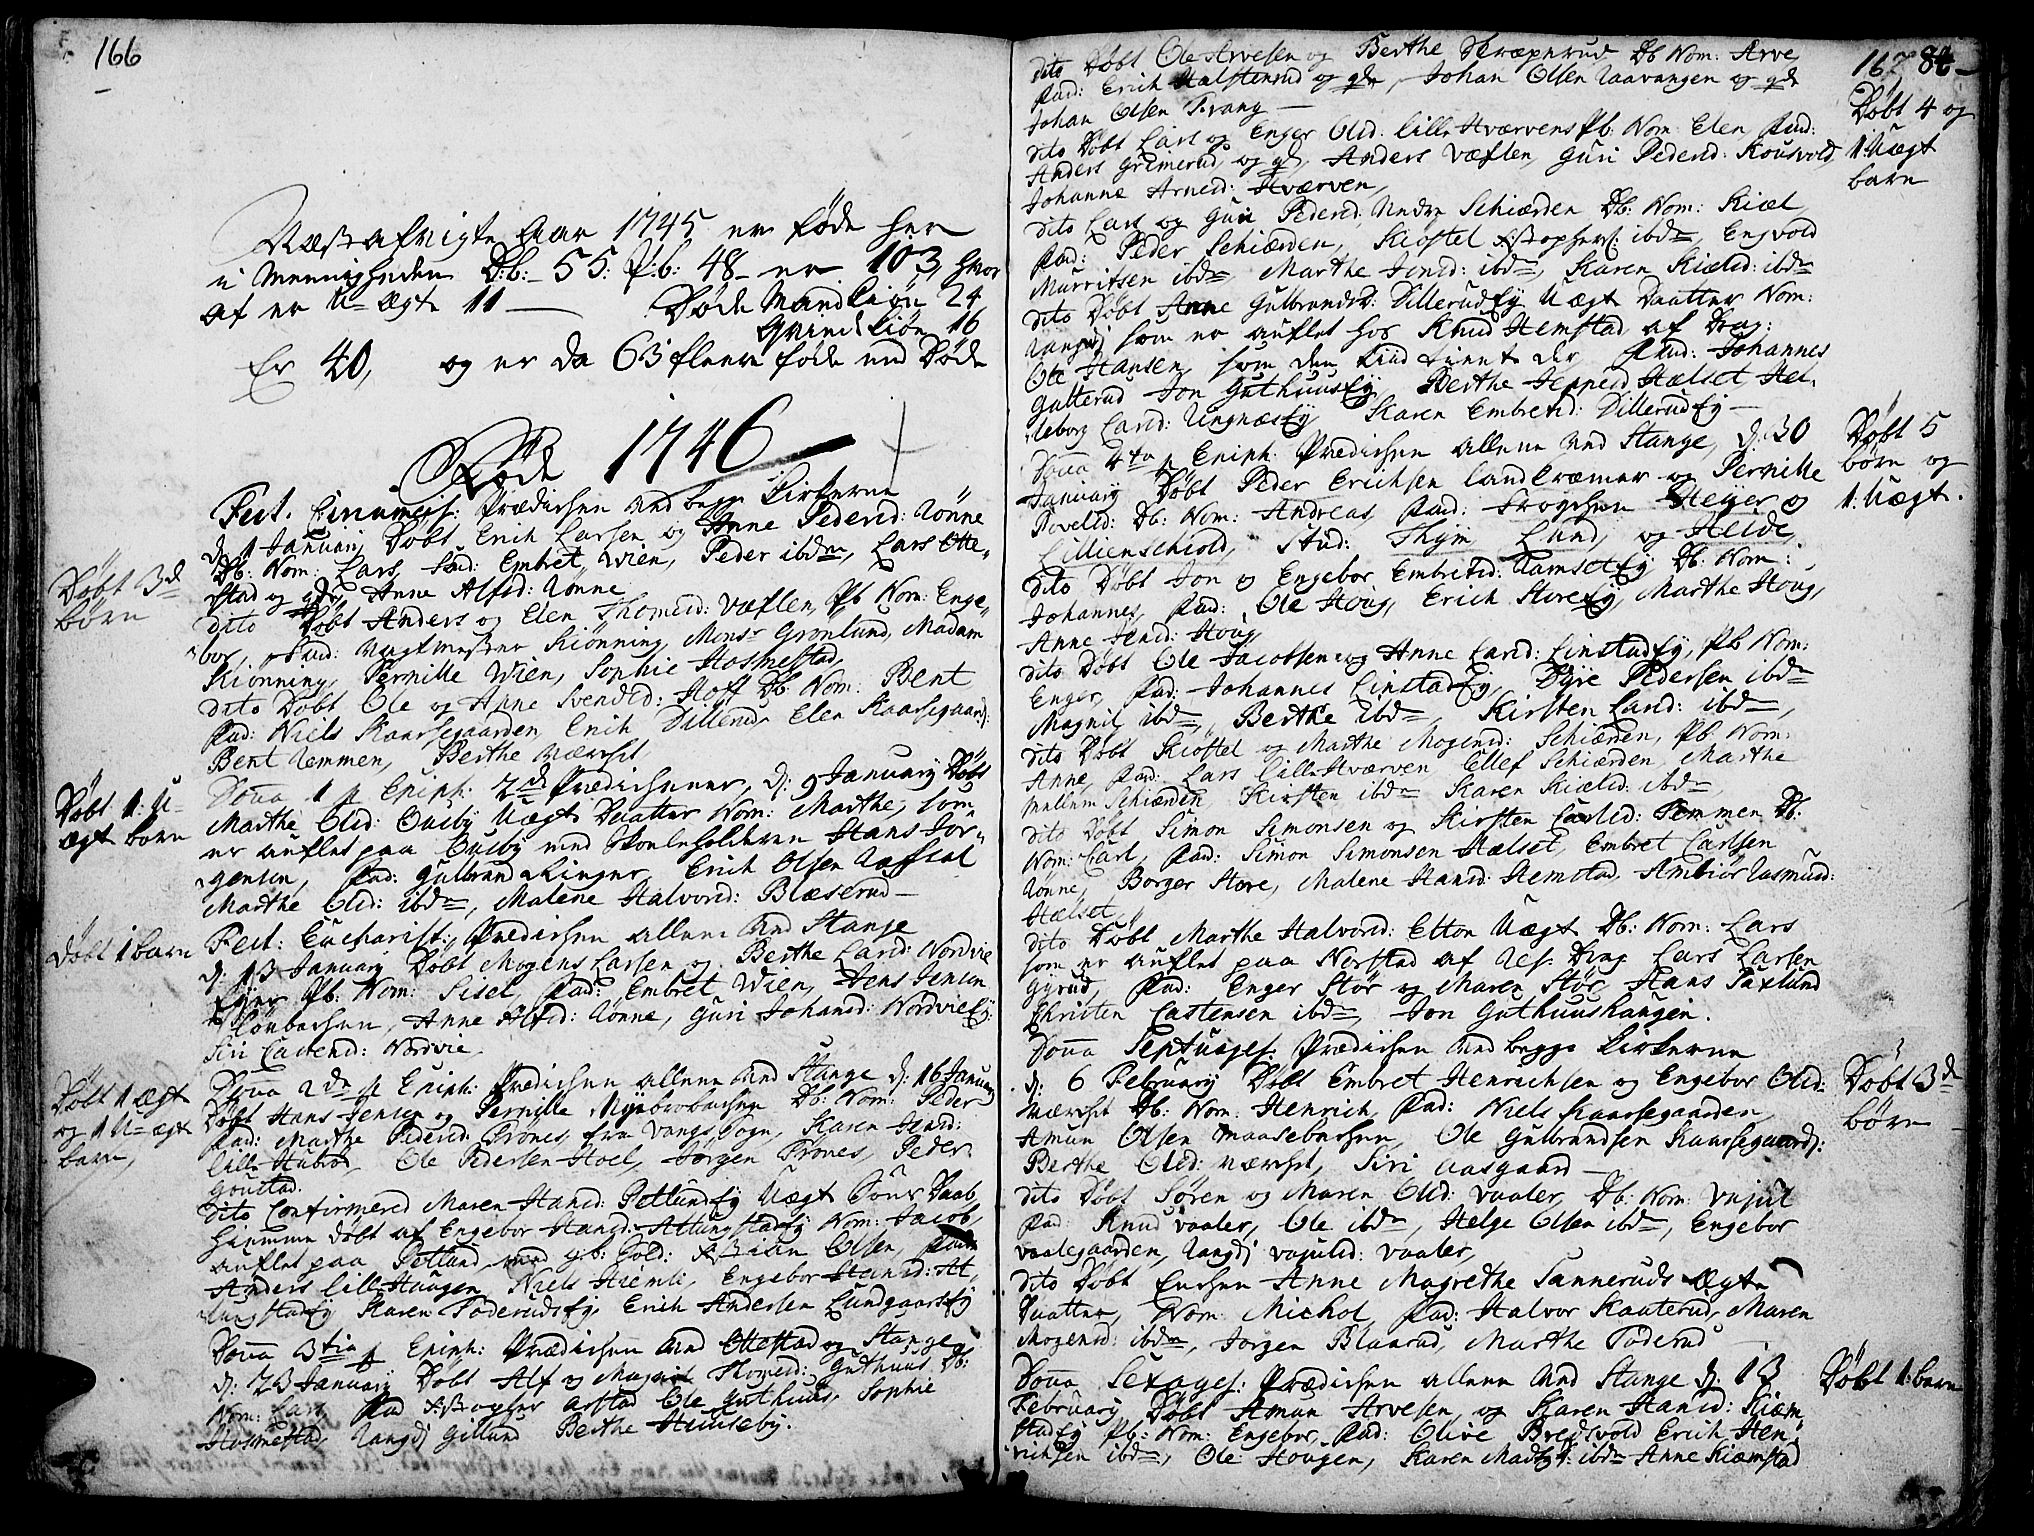 166
Næstafvigte Aar 1745 er føde her
i Menigheden D:b: 55: P:b: 48 er 103, hvor
af er U-ægte 11 — Døde Mandkiøn 24
Qvindkiøn 16
Er 40, og er da 63 fleere føde end Døde
Føde 1746
Fest. Circumcis: Prædichen ved begge Kirkerne
d: 1 January Døbt Erich Larsen og Anne Pedersd: Rønne
Db: Nom: Lars, Fad: Embret Wien, Peder ibdm, Lars Otte-
stad og gde, Anne Alfsd: Rønne
Døbt 3de
børn
dito Døbt Anders og Elen Thomesd: Væflen, Pb Nom: Enge-
bor, Fad: Kiønning, Mons: Grønlund, Madam
Kiønning, Pernille Wien, Sophie Hosmestad,
dito Døbt Ole og Anne Svendsd: Hoff Db Nom: Bent
Fad: Niels Kaarsegaarden Erich Dillerud Elen Kaarsegaard:
Bent Remmen, Berthe Nærset
Dona 1 p Epiph: 2de Prædichener, d: 9 January Døbt
Marthe Olsd: Ousby Uægt Daatter Nom: Marthe, som
er auflet paa Ousby med Skoeleholderen Hans Jør-
gensen, Fad: Gulbrand Ringer, Erich Olsen
Marthe Olsd: ibdm, Malene Halvorsd: Blæserud —
Døbt 1: U-
ægt barn
Fest: Eucharist: Prædichen allene ved Stange
d: 13 January Døbt Mogens Larsen og Berthe Larsd: Nordvie
Eyer Pb: Nom: Sisel, Fad: Embret Wien, Jens Jensen
Lønbachen, Anne Alfsd: Rønne, Guri Johansd: Nordvieey:
Siri Castensd: Nordvie
Døbt 1 barn
Dona 2da p Epiph: Prædichen allene ved Stange d: 16 January
Døbt Hans Jensen og Pernille Myrbrobachen Db: Nom: Peder
Fad: Marthe Pedersd: Frønes, fra Vangs Sogn, Karen Jensd:
Lille Hubred, Ole Pedersen Hoel, Jørgen Frønes, Peder
Goustad.
Døbt 1 ægt
og 1 U-ægt
barn,
dito Confirmered Maren Hansd: Petlundey Uægt Søns Daab
hiemme døbt af Engebor Hansd: Attungstadey Nom: Jacob,
auflet paa Petlund med gb: Sold: Xstian Olsen, Fad:
Anders Lille Haugen, Niels Hiemli, Engebor Hansd: At-
tungstadey Karen Toderudsey, Erich Andersen Lundgaardey
Dona 3tia p Epiph: Prædichen ved Ottestad og Stange
d: 23 January Døbt Alf og Magnil Thomesd: Guthuus Db:
Nom: Lars, Fad Xstopher Arstad Ole Guthuus, Sophie
Hosmestad, Rangdj Gillund Berthe Huuseby.
167 84
dito Døbt Ole Arvesen og Berthe Skræpperud Db Nom: Arve
Fad: Erich Halstenrud og gde, Johan Olsen Raavangen og gde
Johan Olsen Tvang —
dito Døbt Lars og Enger Olsd: Lille Hværvens Pb: Nom: Elen, Fad:
Anders Grimerud, og gde, Anders Væflen, Guri Pedersd: Kousvold,
Johanne Arnesd: Hværven,
Døbt 4 og
1: Uægt
barn
dito Lars og Guri Pedersd: Nedre Schiærden Db: Nom: Kiæl
Fad: Peder Schiærden, Kiøstel Xstophers: ibdm, Engvold
Murritsen ibdm, Marthe Jensd: ibdm, Karen Kiælsd: ibdm
dito Døbt Anne Gulbrandsd: Dillerudey Uægt Daatter Nom:
Rangdj som er auflet hos Knud Hemstad af Drag:
Ole Hansen, som den tiid tient der, Fad: Johannes
Gutterud Jon Guthuusey, Berthe Jeppesd Hælset Hel-
leborg Larsd: Ringnæsey Karen Embretsd: Dillerudey —
Dona 4ta p Epiph: Prædichen allene ved Stange, d: 30
January Døbt Peder Erichsen Landkræmer og Pernille
Povelsd: Db: Nom: Andreas, Fad: Frogchen Steger og
Lillienschiold, stud: Thym Lund, og Heide,
Døbt 5
børn og
1: Uægt.
dito Døbt Jon og Engebor Embretsd: Ramsetey Db: Nom:
Johannes, Fad: Ole Houg, Erich Horeey, Marthe Houg,
Anne Jensd: Houg,
dito Døbt Ole Jacobsen og Anne Larsd: Linstadey, Pb Nom:
Enger, Fad: Johannes Linstadey, Dyre Pedersen ibdm
Magnil ibdm, Berthe ibdm, Kirsten Larsd: ibdm,
dito Døbt Kiøstel og Marthe Mogensd: Schiærden, Pb Nom:
Anne, Fad: Lars Lille Hværven Ellef Schiærden, Marthe
Mellem Schiærden, Kirsten ibdm Karen Kiælsd: ibdm,
dito Døbt Simon Simonsen og Kirsten Carlsd: Remmen Db:
Nom: Carl, Fad: Simon Simonsen Hælset, Embret Carlsen
Rønne, Borger Hore, Malene Hansd: Hemstad, Ambiør Rasmusd:
Hælset,
dito Døbt Marthe Halvorsd: Etton Uægt Db: Nom: Lars
som er auflet paa Norstad af Res: Drag Lars Larsen
Gyrud, Fad: Enger Stør og Maren Stør, Hans Saxlund
Christen Castensen ibdm, Jon Guthuushaugen.
Dona Septuages: Prædichen ved begge Kirkerne
d: 6 February Døbt Embret Henrichsen og Engebor Olsd:
Nærset Db: Nom: Henrich, Fad: Niels Kaarsegaarden,
Amun Olsen Maasebachen, Ole Gulbrandsen Kaarsegaard:
Berthe Olsd: Nærset, Siri Aasgaard —
Døbt 3de
børn
dito Døbt Søren og Maren Olsd: Vaaler, Db: Nom: Vajul
Fad: Knud Vaaler, Ole ibdm, Helge Olsen ibdm, Engebor
Vaalegaarden, Rangdj Vajulsd: Vaaler,
dito Døbt Enchen Anne Magrethe Sanneruds ægte
Daatter, Nom: Michol, Fad: Halvor Kaaterud, Maren
Mogensd: ibdm, Jørgen Blaarud, Marthe Toderud
Dona Sexages: Prædichen allene ved Stange d: 13
February Døbt Amun Arvesen og Karen Hansd: Kiæm-
stadey Pb: Nom: Engebor, Fad: Olive Bredsvold Erich Hen-
richsen ibdm, Ole Hougen, Karen Madsd: ibdm Anne Kiæmstad
Døbt 1: barn